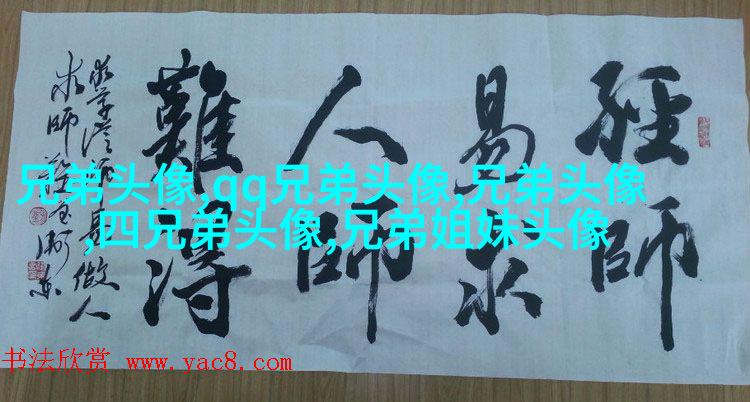 經師
易求
人師
難得
做人
求師
兄弟头像,qq兄弟头像,兄弟头像
,四兄弟头像,兄弟姐妹头像
书法欣赏 www.yac8.com